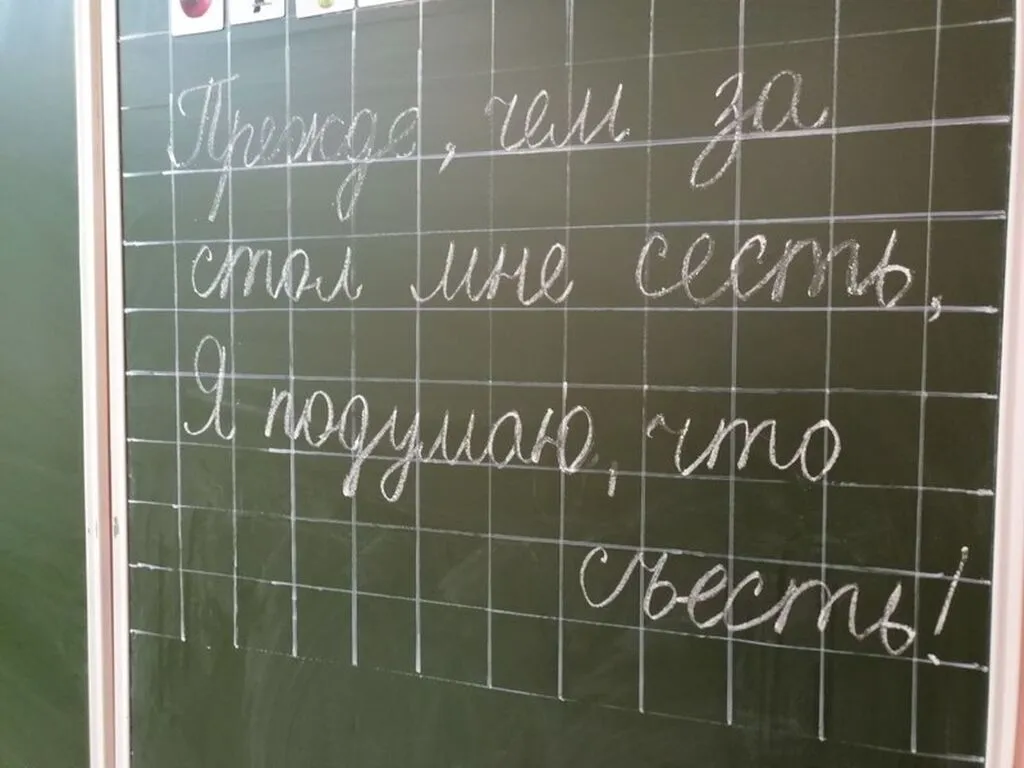 Прежде, чем за
стол мне сесть,
Я подумаю, что
съесть!